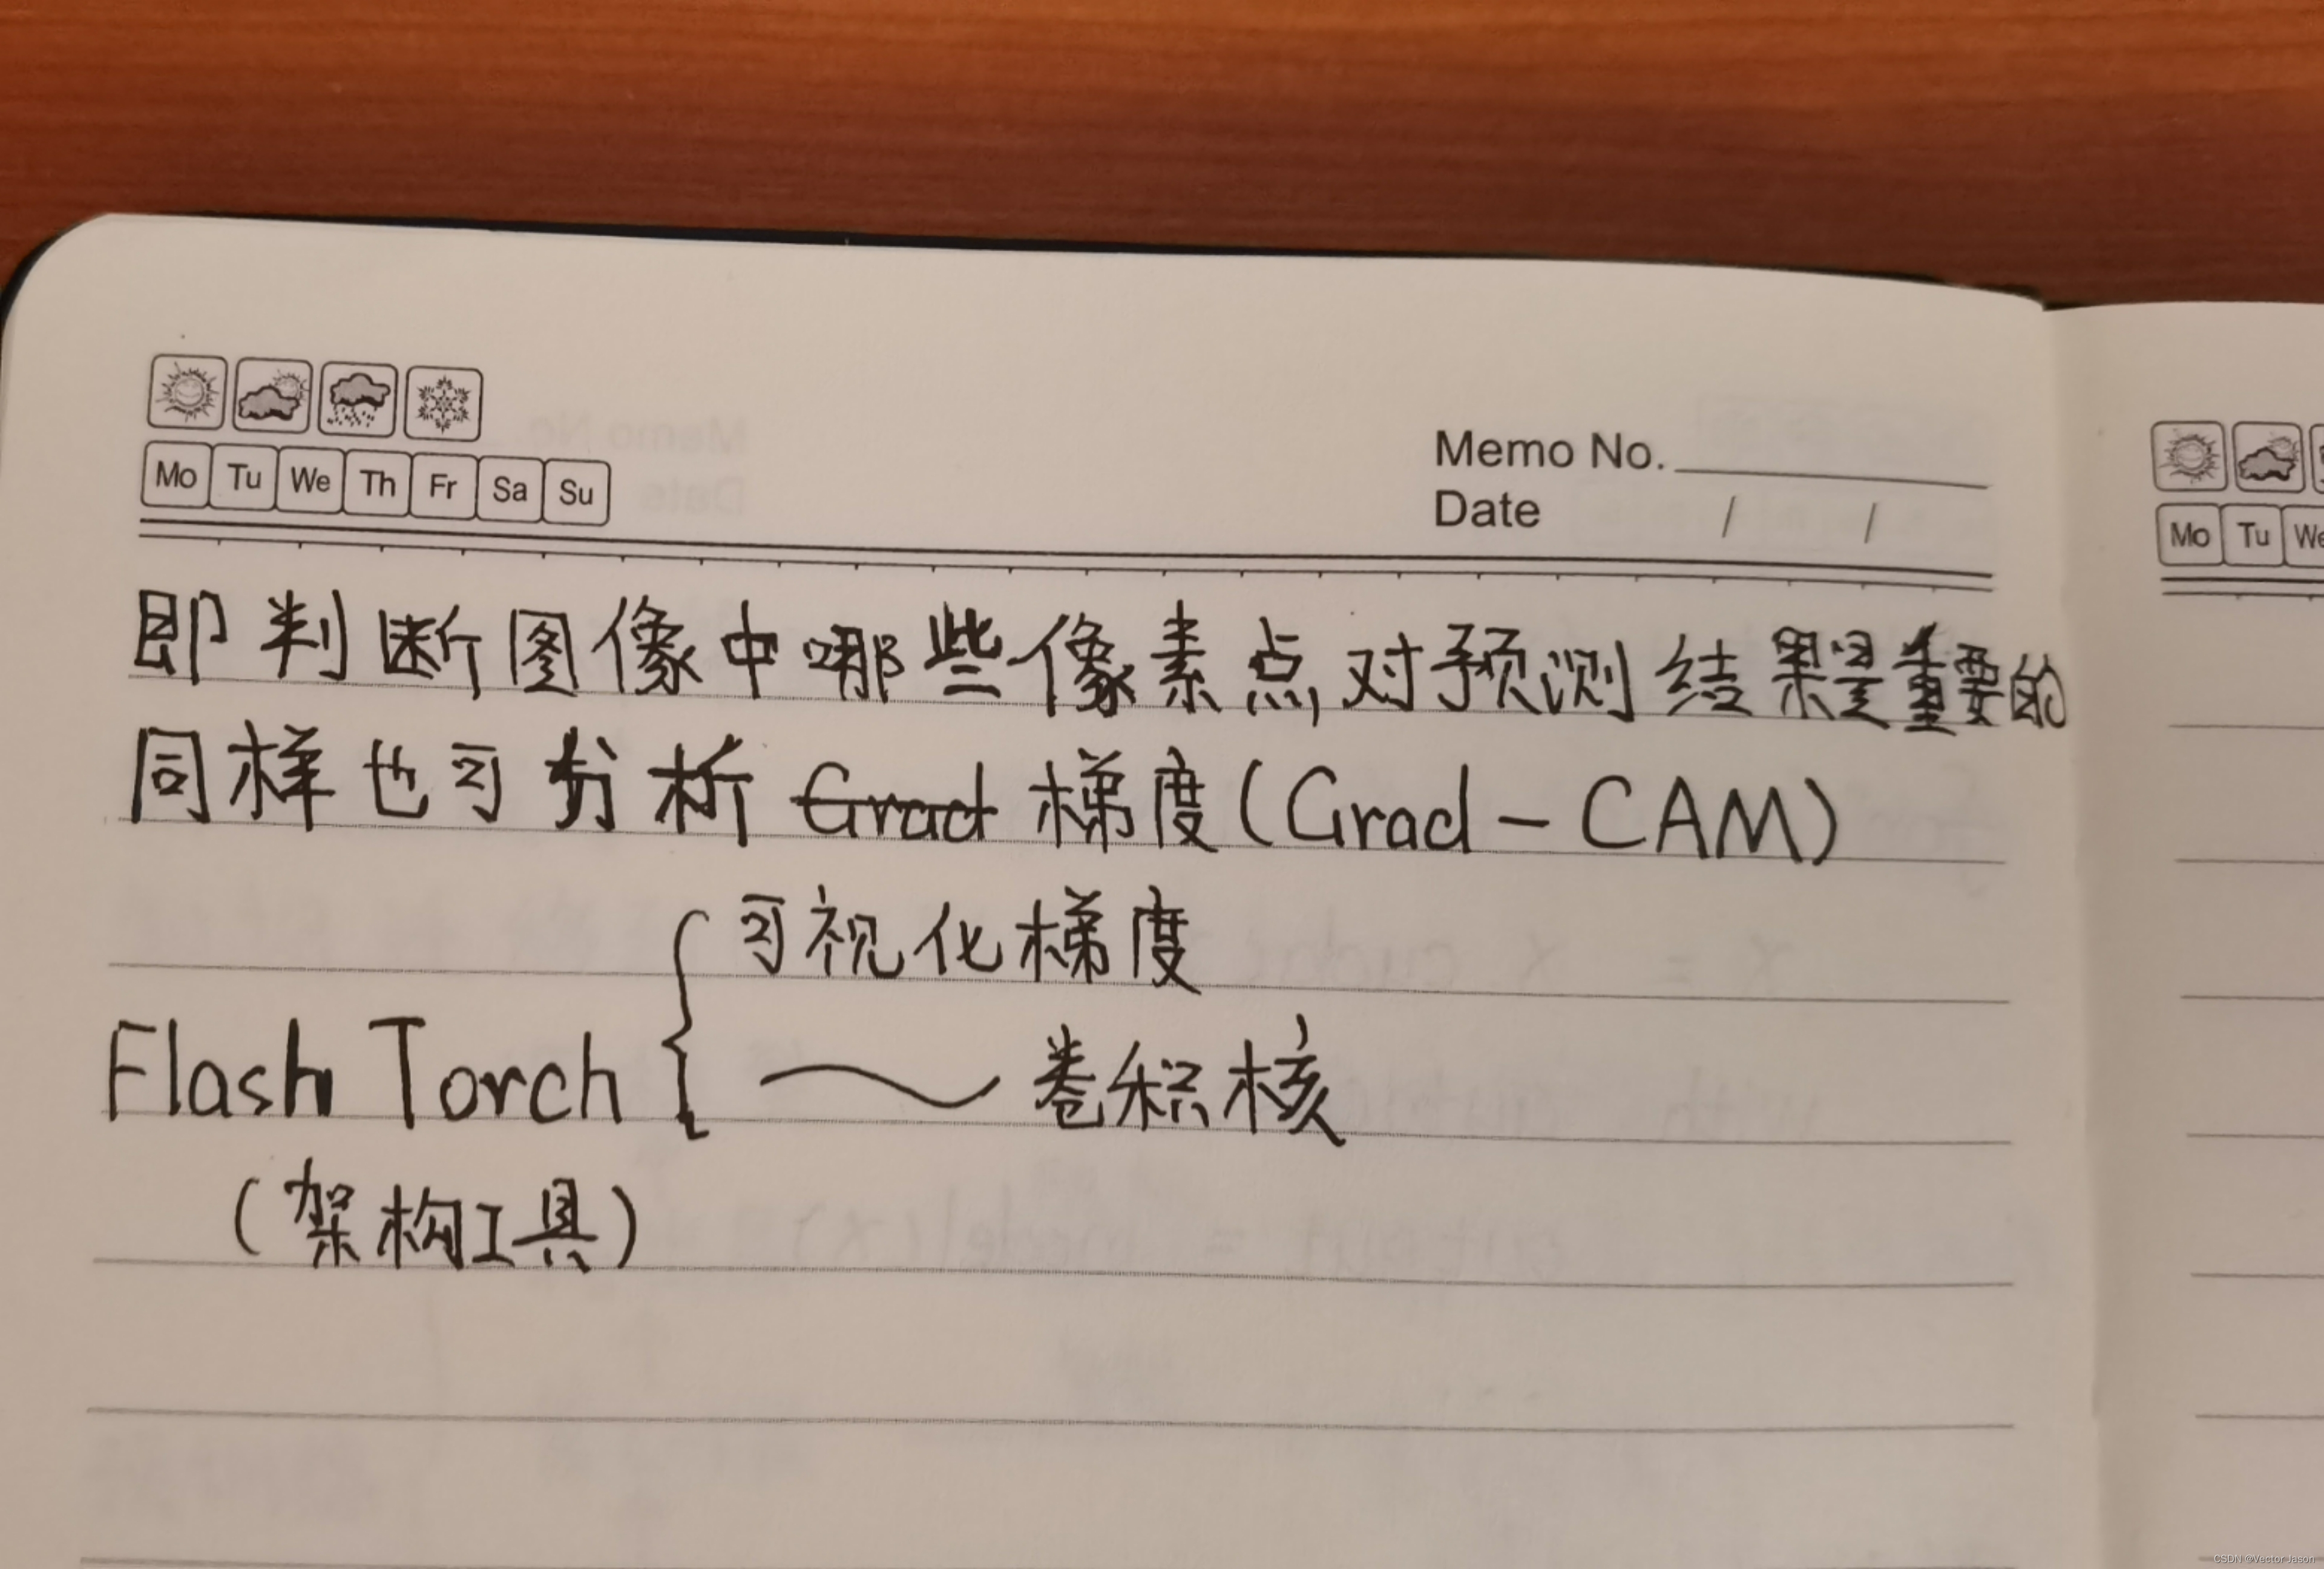 Mo Tu We Th Fr Sa Su
Memo No.
Date / /
Mo Tu We
即判断图像中哪些像素点对预测结果是重要的
同样也可分析 Grad 梯度(Grad-CAM)
可视化梯度
Flash Torch { ～ 卷积核
(架构工具)
CSDN @Vector Jason